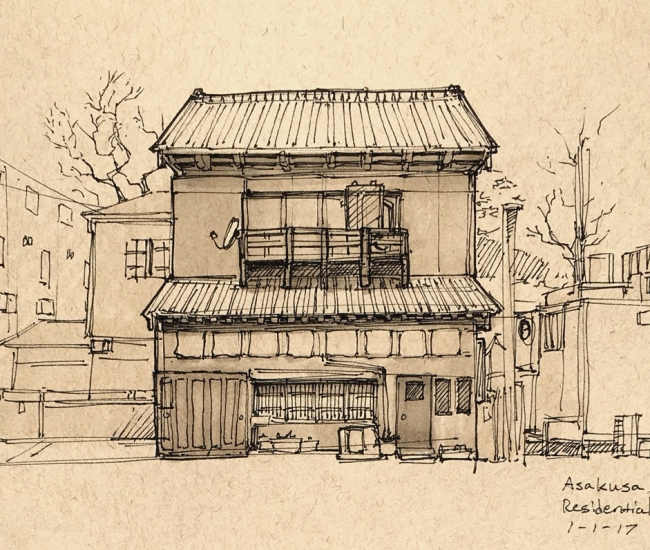 Asakusa
Residential
1-1-17